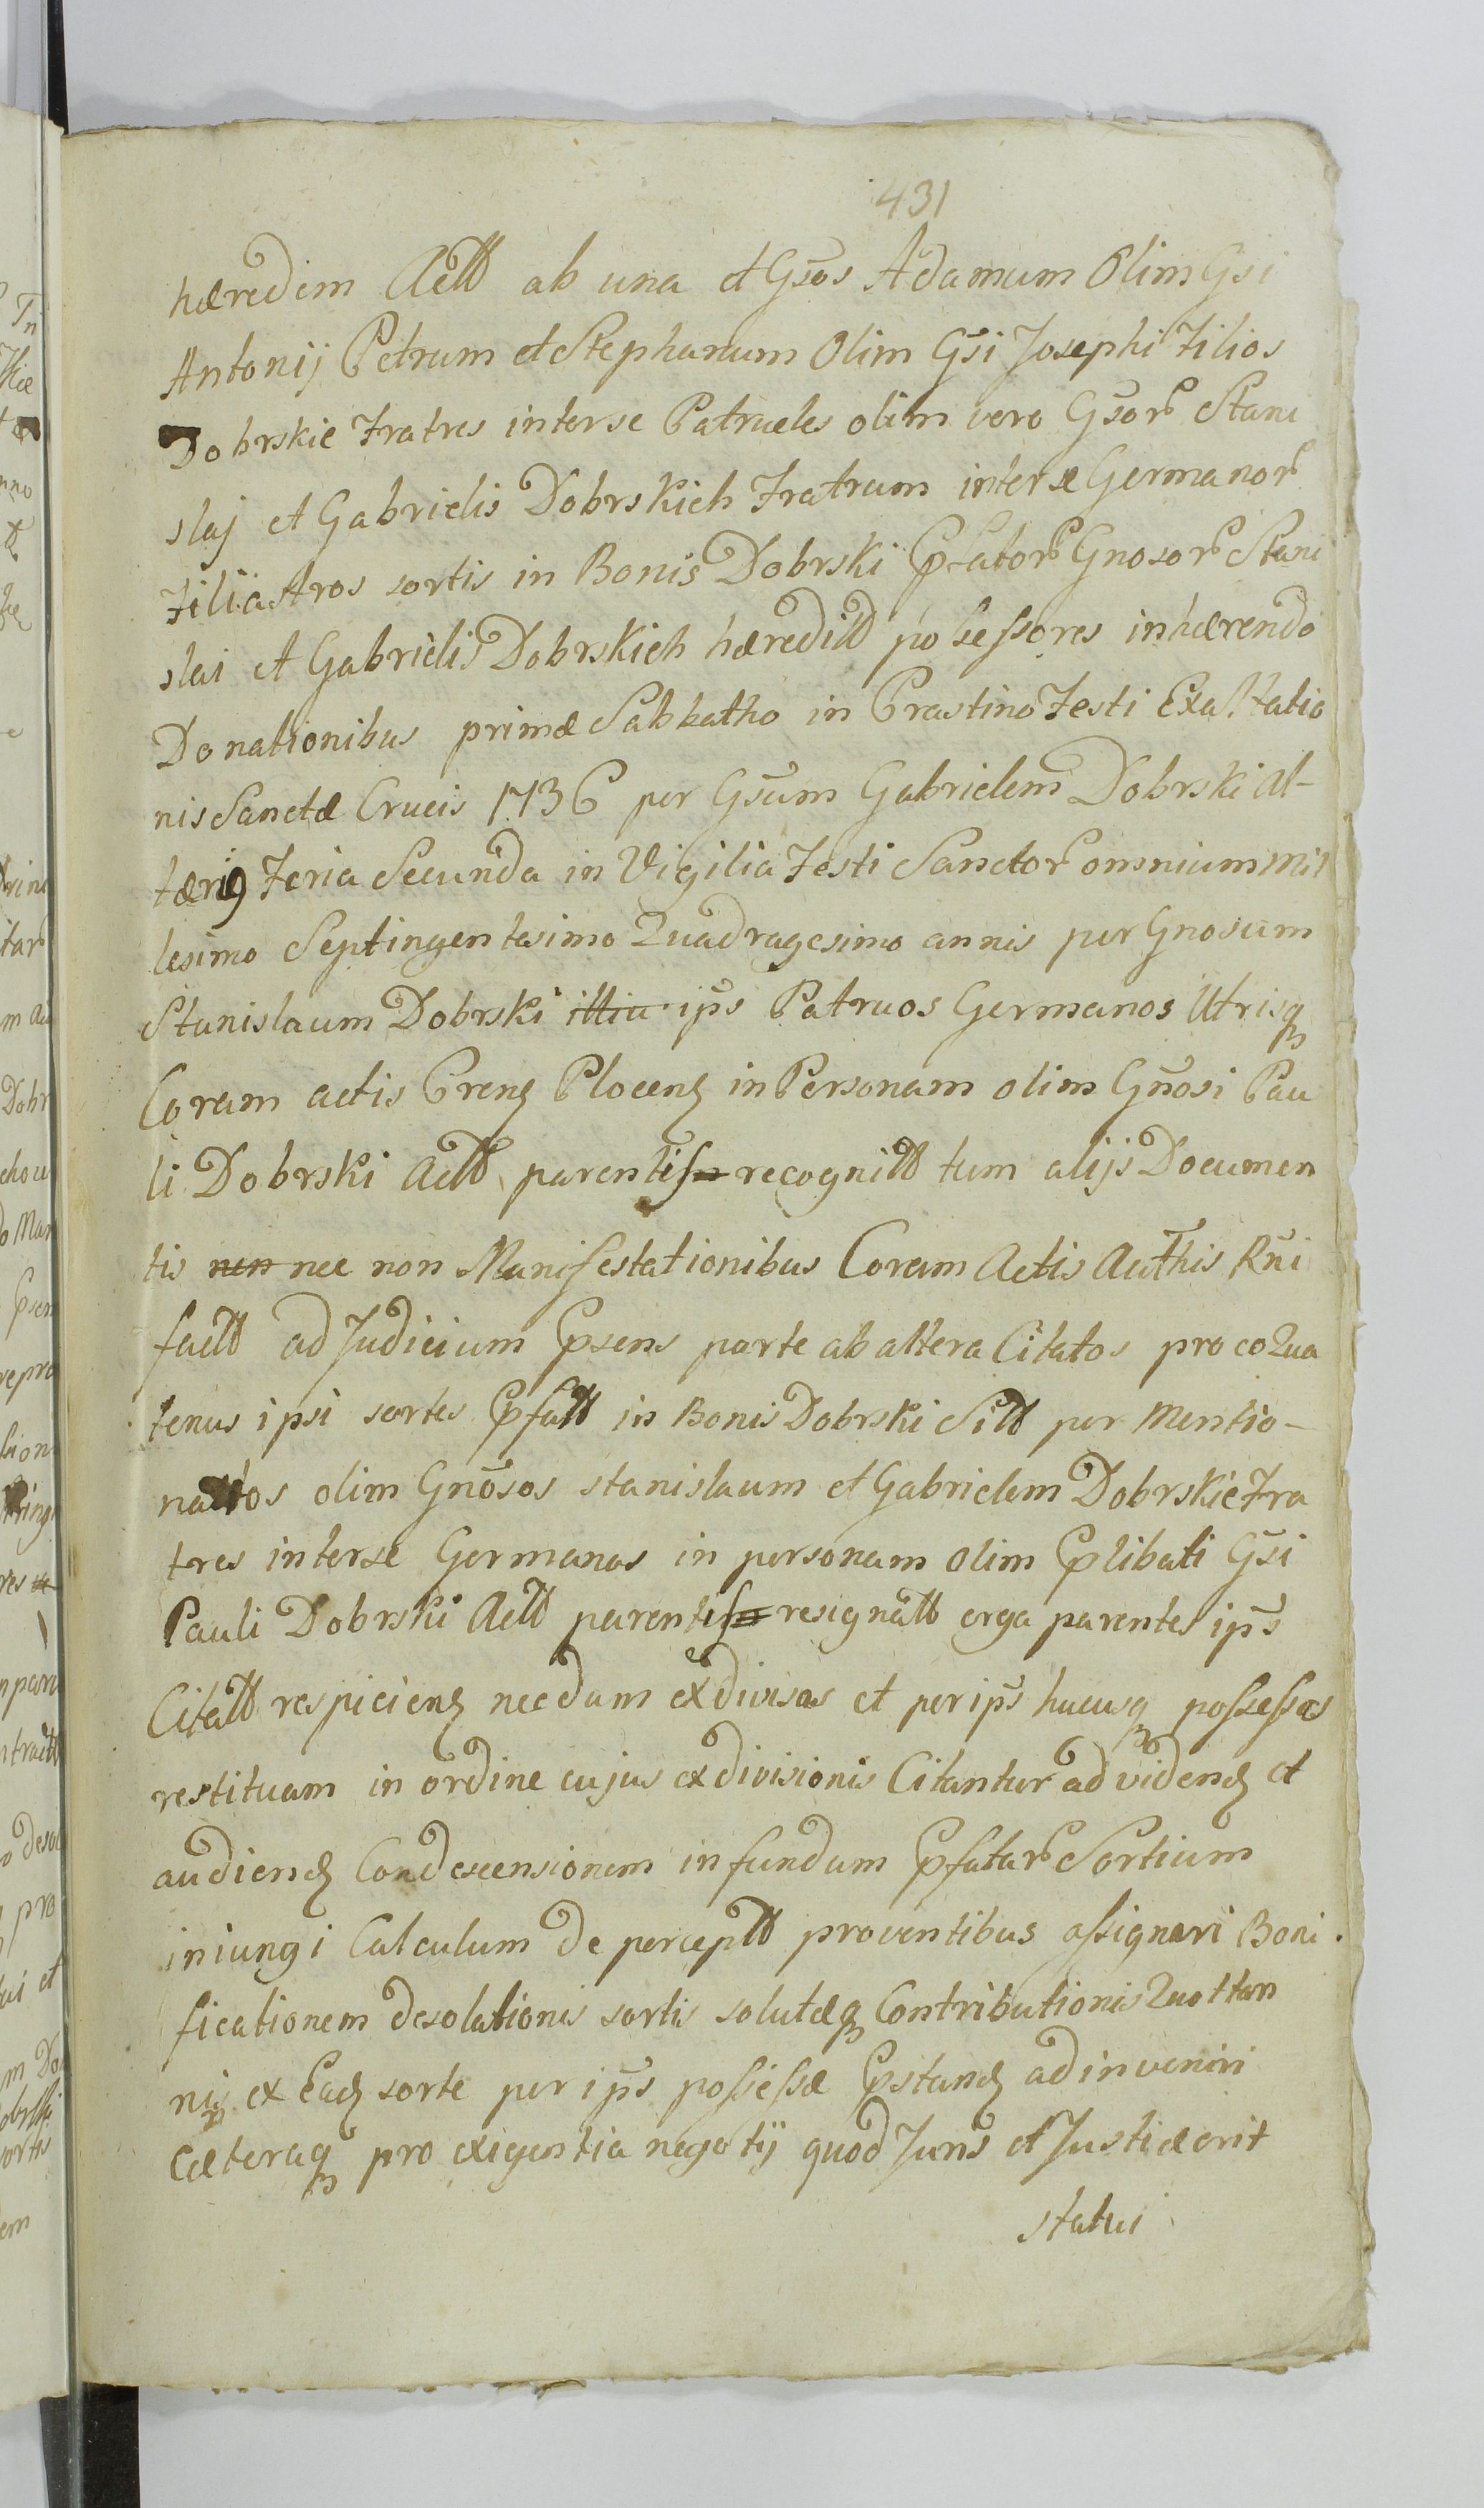 431
hæredem Actt ab una et Gsos Adamum Olim Gsi
Antonij Petrum et Stephanum Olim Gsi Josephi Filios
Dobrskie Fratres inter se Patrueles olim vero Gsor Stani
slaj et Gabrielis Dobrskich Fratrum inter se Germanor
Filiastros sortis in Bonis Dobrski Pfator Gnosor Stani
slai et Gabrielis Dobrskich hæreditt possessores inhærendo
Donationibus primæ Sabbatho in Crastino Festi Exaltatio
nis Sanctæ Crucis 1736 per Gsum Gabrielem Dobrski Al-
teri9 Feria Secunda in Vigilia Festi Sanctor omnium Mil
lesimo Septingentesimo Quadragesimo annis per Gnosum
Stanislaum Dobrski ips Patruos Germanos Utrisq
Coram actis Crens Plocens in Personam olim Gnosi Pau
li Dobrski Actt parentis recognitt tum alijs Documen
tis non nec non Manifestationibus Coram Actis Authis Rni
factt ad Judicium Psens parte ab altera Citatos pro eo Qua
tenus ipsi sortes Pfatt in Bonis Dobrski Sitt per Mentio-
nattos olim Gnosos Stanislaum et Gabrielem Dobrskie Fra
tres inter se Germanos in personam olim Plibati Gsi
Pauli Dobrski Actt parentis resignatt erga parentes ips
Citatt respiciens necdum exdivisas et per ips hucusq possessas
restituam in ordine cujus exdivisionis Citantur ad vidend et
audiend Condescensionem in fundum Pfatar Sortium
iniungi Calculum de perceptt proventibus assignari Boni
ficationem desolationis sortis solutæq Contributionis Quottan
nis ex Ead sorte per ips possessæ Pstand adinveniri
Cæteraq pro exigentia negotij quod Juris et Justitiæ erit
statui